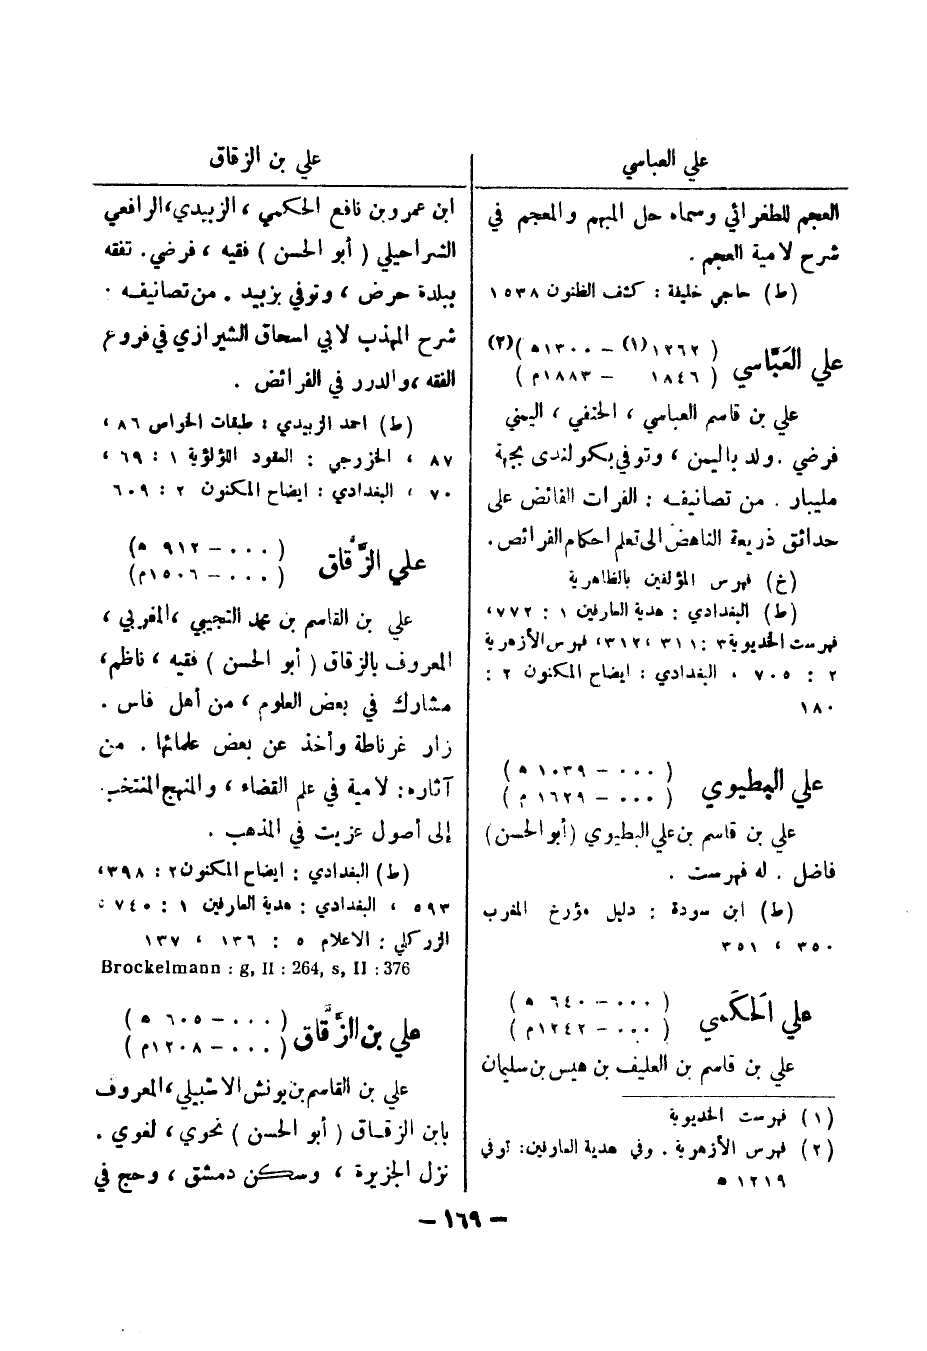 علي العباسي
العجم للطغرائي وسماه حل المبهم والمعجم في
شرح لامية العجم .
(ط) حاجي خليفة : كشف الظنون ١٥٣٨
علي العَبَّاسي
( ١٢٦٢(١) – ١٣٠٠ه )(٢)
( ١٨٤٦ – ١٨٨٣م )
علي بن قاسم العباسي ، الحنفي ، اليمني
فرضي . ولد باليمن ، وتوفي بكولندى بجهة
مليبار . من تصانيفه : الفرات الفائض على
حدائق ذريعة الناهض الى تعلم احكام الفرائص.
(خ) فهرس المؤلفين بالظاهرية
(ط) البغدادي : هدية العارفين ١ : ٧٧٢،
فهرست الخديوية ٣ : ٣١١ ، ٣١٢، فهرس الأزهرية
٢ : ٧٠٥ ، البغدادي : ايضاح المكنون ٢ :
١٨٠
علي البطيوي
( ... – ١٠٣٩ ه )
( ... – ١٦٢٩ م )
علي بن قاسم بن علي البطيوي (أبو الحسن)
فاضل . له فهرست .
(ط) ابن سودة : دليل مؤرخ المغرب
٣٥٠ ، ٣٥١
علي الحَكَمي
( ... – ٦٤٠ ه )
( ... – ١٢٤٢م )
علي بن قاسم بن العليف بن هيس بن سليمان
(١) فهرست الخديوية
(٢) فهرس الأزهرية . وفي هدية العارفين: توفي
١٢١٩ ه
علي بن الزقاق
ابن عمرو بن نافع الحكمي ، الزبيدي، الرافعي
الشراحيلي ( أبو الحسن ) فقيه ، فرضي . تفقه
ببلدة حرض ، وتوفي بزبيد . من تصانيفه :
شرح المهذب لابي اسحاق الشيرازي في فروع
الفقه ، والدرر في الفرائض .
(ط) احمد الزبيدي : طبقات الخواص ٨٦ ،
٨٧ ، الخزرجي : العقود اللؤلؤية ١ : ٦٩ ،
٧٠ ، البغدادي : ايضاح المكنون ٢ : ٦٠٩
علي الزَّقاق
( ... – ٩١٢ ه )
( ... – ١٥٠٦م )
علي بن القاسم بن محمد التجيبي ، المغربي ،
المعروف بالزقاق ( أبو الحسن ) فقيه ، ناظم،
مشارك في بعض العلوم ، من أهل فاس .
زار غرناطة وأخذ عن بعض علمائها . من
آثاره : لامية في علم القضاء ، والمنهج المنتخب
إلى أصول عزيت في المذهب .
(ط) البغدادي : ايضاح المكنون ٢ : ٣٩٨،
٥٩٣ ، البغدادي : هدية العارفين ١ : ٧٤٠ ،
الزركلي : الاعلام ٥ : ١٣٦ ، ١٣٧
Brockelmann : g, II : 264, s, II : 376
علي بن الزَّقَّاق
( ... – ٦٠٥ ه )
( ... – ١٢٠٨م )
علي بن القاسم بن يونش الاشبيلي ، المعروف
بابن الزقاق ( أبو الحسن ) نحوي ، لغوي .
نزل الجزيرة ، وسكن دمشق ، وحج في
– ١٦٩ –